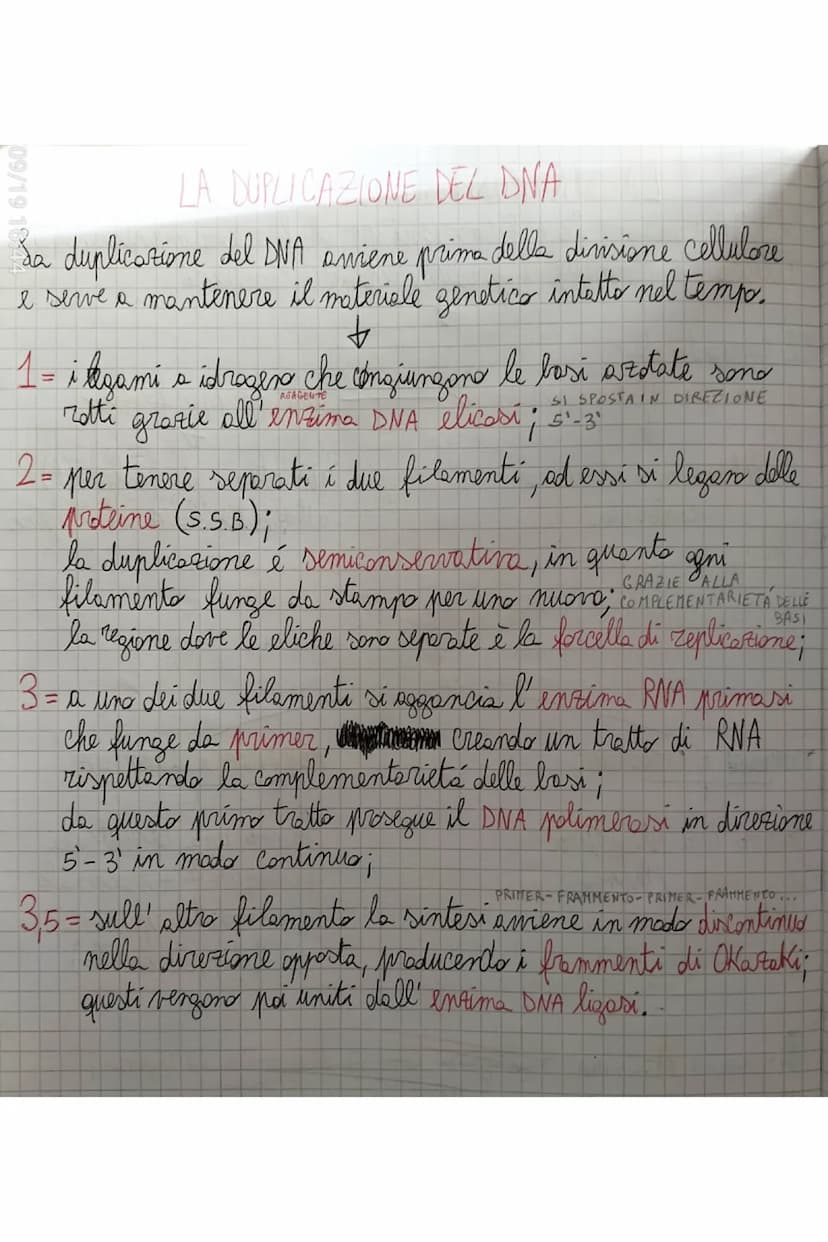 09/19 1
LA DUPLICAZIONE DEL DNA
La duplicazione del DNA avviene prima della divisione cellulare
e serve a mantenere il materiale genetico intatto nel tempo.
↓
1= i legami a idrogeno che congiungono le basi azotate sono
REAGENTE SI SPOSTA IN DIREZIONE
rotti grazie all'enzima DNA elicasi; 5'-3'
2= per tenere separati i due filamenti, ad essi si legano delle
proteine (S.S.B.);
la duplicazione é semiconservativa, in quanto ogni
filamento funge da stampo per uno nuovo; GRAZIE ALLA
COMPLEMENTARIETÁ DELLE
BASI
la regione dove le eliche sono separate è la forcella di replicazione;
3= a uno dei due filamenti si aggancia l'enzima RNA primasi
che funge da primer, creando un tratto di RNA
rispettando la complementarietá delle basi;
da questo primo tratto prosegue il DNA polimerasi in direzione
5'-3' in modo continuo;
PRIMER-FRAMMENTO-PRIMER-FRAMMENTO...
3,5= sull'altro filamento la sintesi avviene in modo discontinuo
nella direzione opposta, producendo i frammenti di OKazaKi;
questi vengono poi uniti dall'enzima DNA ligasi.